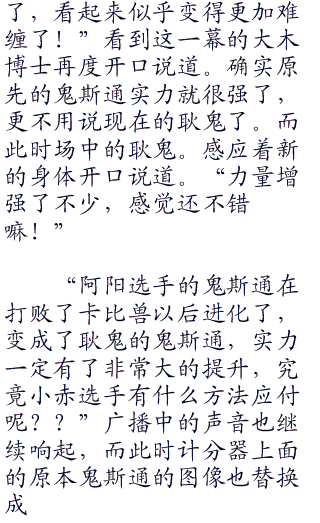 了，看起来似乎变得更加难
缠了！”看到这一幕的大木
博士再度开口说道。确实原
先的鬼斯通实力就很强了，
更不用说现在的耿鬼了。而
此时场中的耿鬼。感应着新
的身体开口说道。“力量增
强了不少，感觉还不错
嘛！”
“阿阳选手的鬼斯通在
打败了卡比兽以后进化了，
变成了耿鬼的鬼斯通，实力
一定有了非常大的提升，究
竟小赤选手有什么方法应付
呢？？”广播中的声音也继
续响起，而此时计分器上面
的原本鬼斯通的图像也替换
成